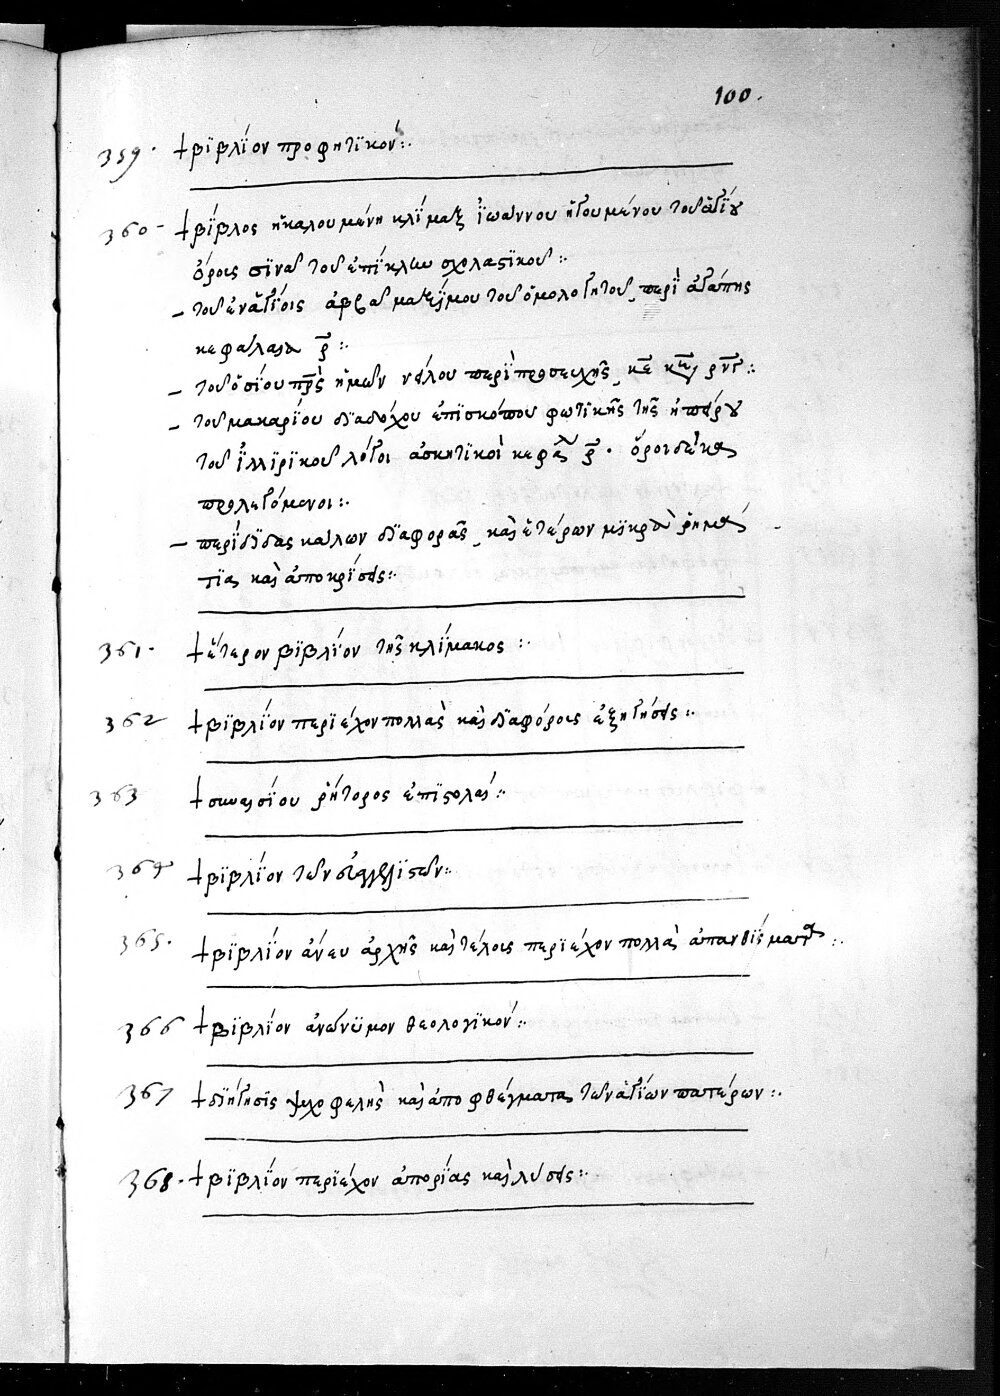 100.
359. +βϊβλΐον προφητϊκόν:.
360 - +βΐβλος ἡ καλουμένη κλΐμαξ ϊωάννου ἡγουμένου τοῦ ἁγΐου
ὄρους σϊνᾶ τοῦ ἐπΐκλην σχολαςϊκοῦ:.
- τοῦ ἐν ἁγΐοις ἀββᾶ μαξΐμου τοῦ ὁμολογητοῦ, περῒ ἀγάπης
κεφάλαια ρ̅:.
- τοῦ ὁσΐου πρ̅ς ἡμῶν νείλου περῒ προσευχῆς, κε̅ ρνγ̅:.
- τοῦ μακαρΐου διαδόχου ἐπϊσκόπου φωτϊκῆς τῆς ἠπείρου
τοῦ ϊλλιρϊκοῦ λόγοι ἀσκητϊκοὶ κεφα^λ ρ̅. ὅροι δέκα
προλεγόμενοι:.
- περὶ διαφορᾶς, καὶ ἑτέρων μϊκρὰ ῥημά
τϊα καὶ ἀποκρΐσεις:.
361. +ἕτερον βϊβλΐον τῆς κλΐμακος:.
362 +βϊβλΐον περϊέχον πολλὰς καὶ διαφόρους ἐξηγήσεις:.
363 +συνεσΐου ῥήτορος ἐπϊςολαί:.
364 +βϊβλΐον τῶν εὐαγγελϊςῶν:.
365. +βϊβλΐον ἄνευ ἀρχῆς καὶ τέλους περϊέχον πολλὰ ἀπανθΐσματα:.
366 +βϊβλΐον ἀνώνϋμον θεολογϊκόν:.
367 +διήγησϊς ψυχοφελὴς καὶ ἀποφθέγματα τῶν ἁγΐων πατέρων:.
368. +βϊβλΐον περϊέχον ἀπορΐας καὶ λύσεις:.